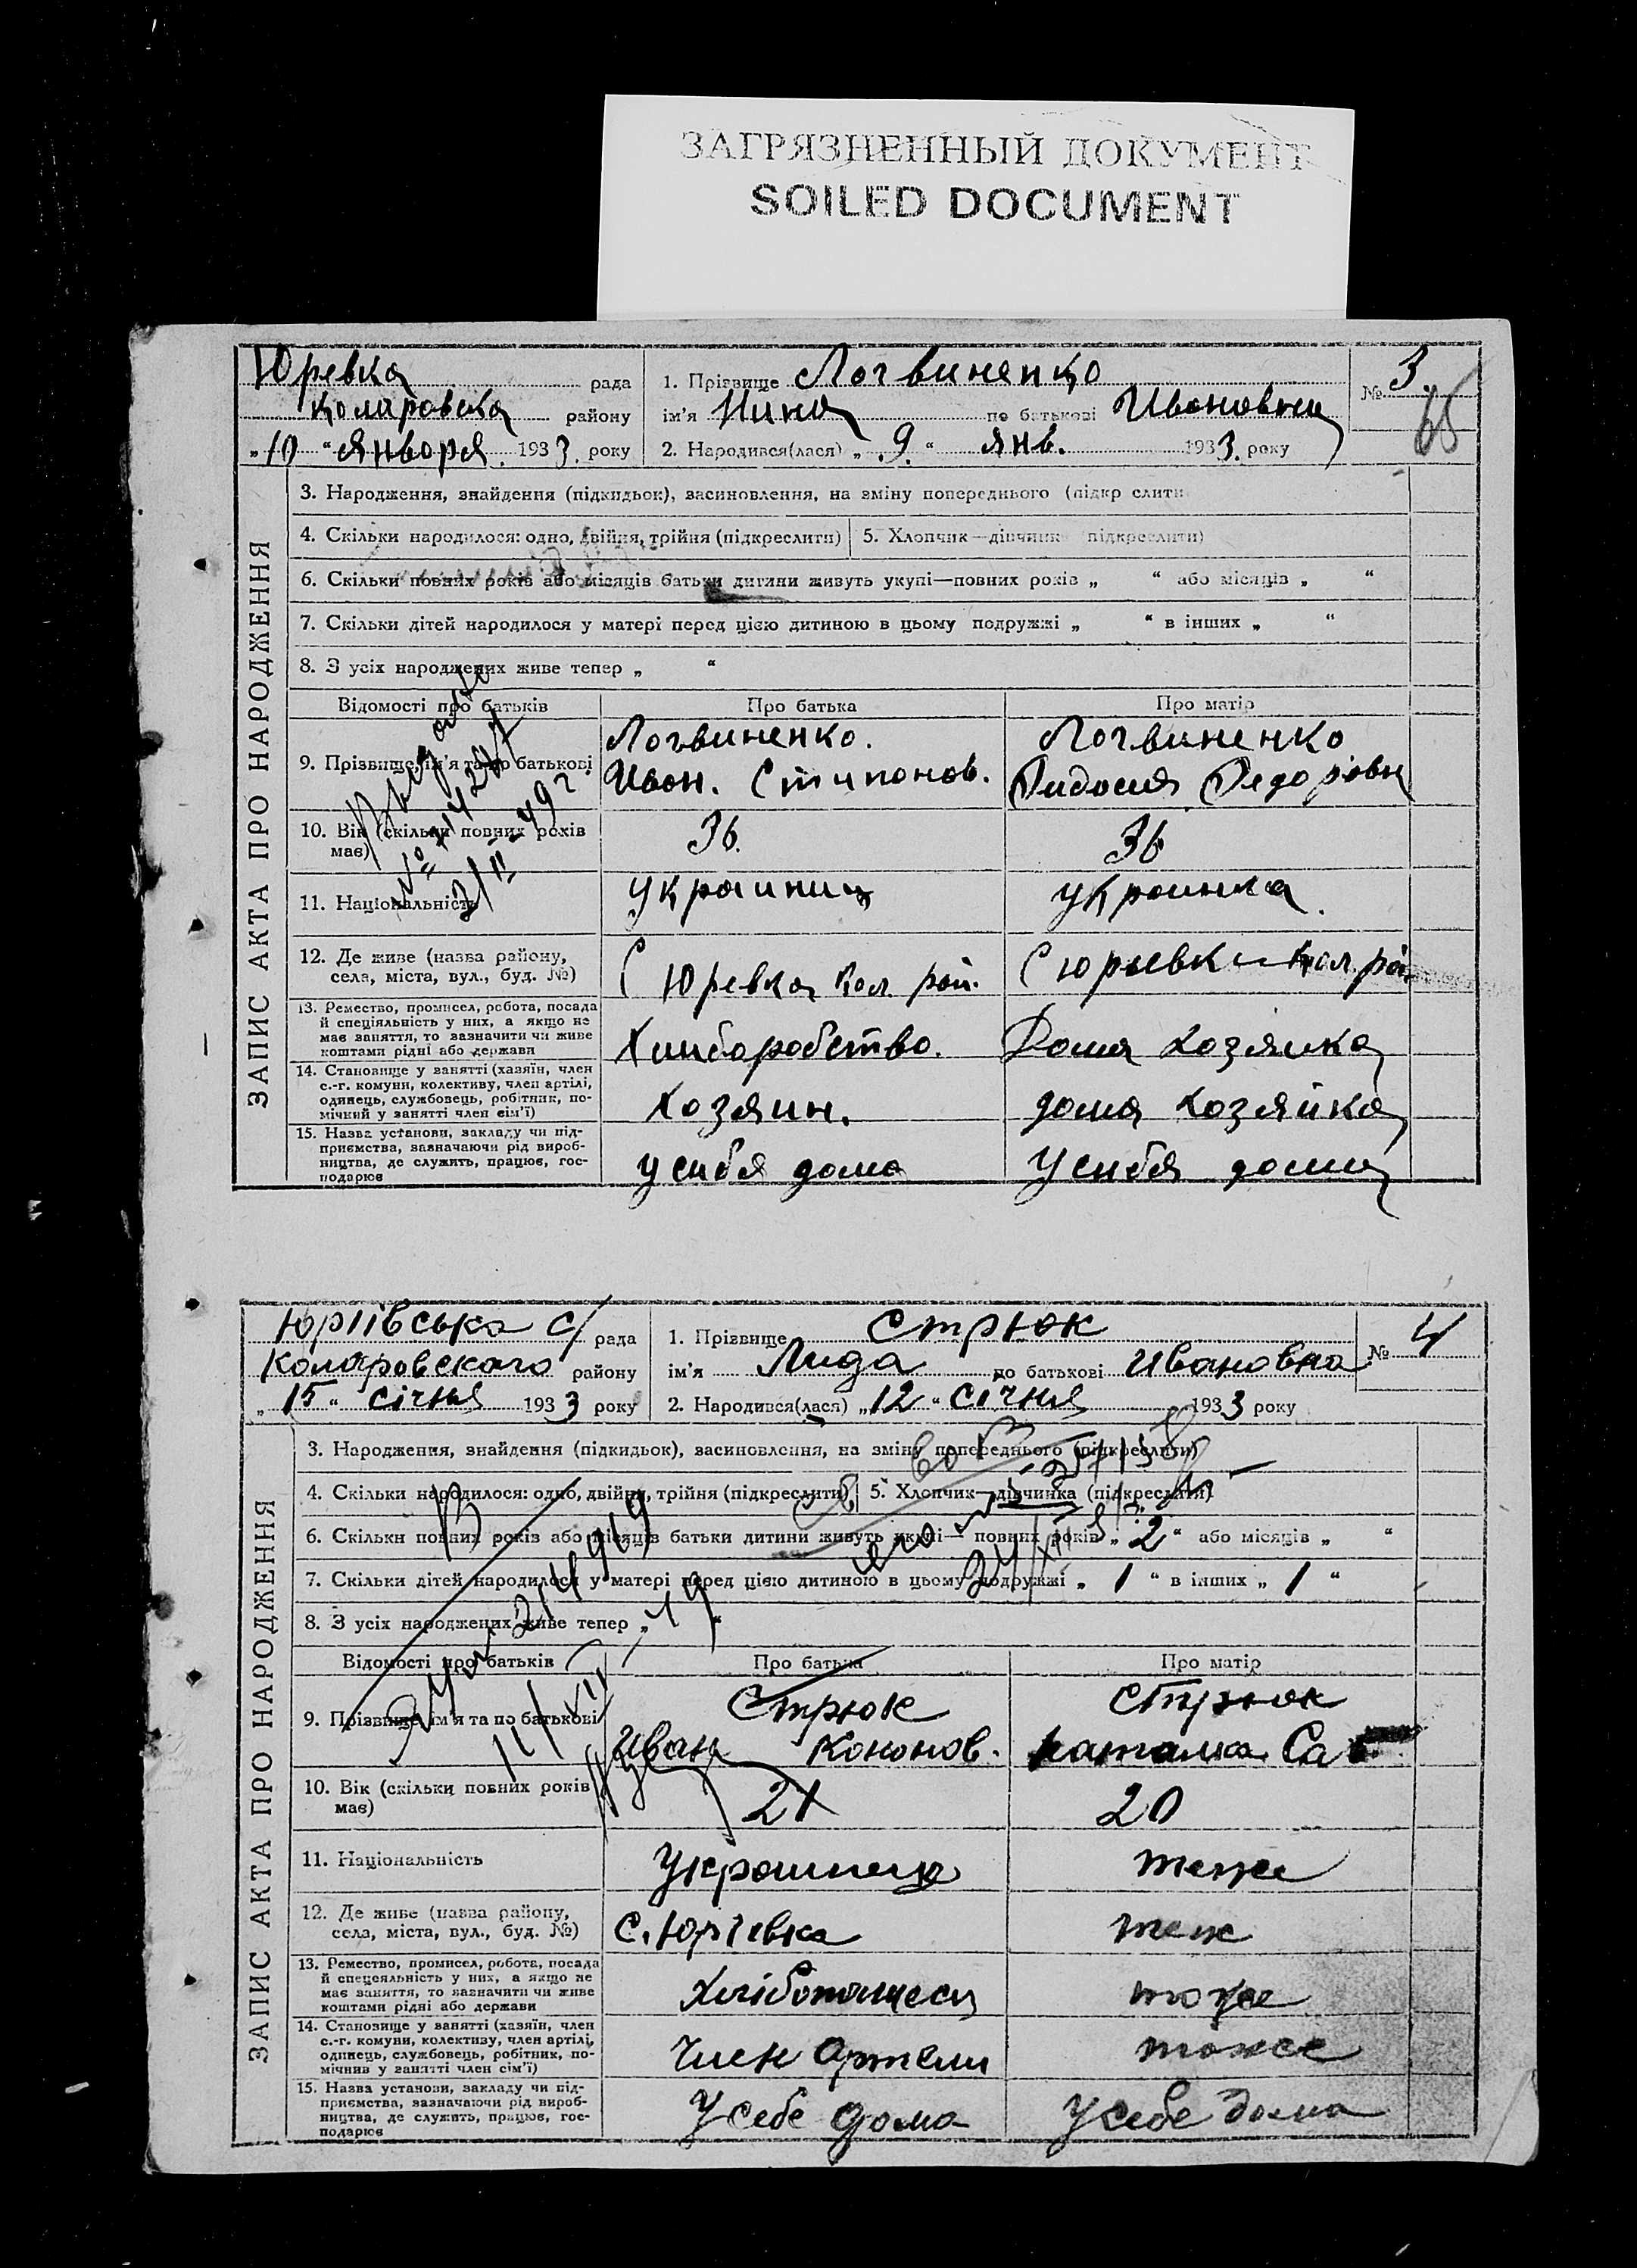 ЗАГРЯЗНЕННЫЙ ДОКУМЕНТ
SOILED DOCUMENT
Юревка рада
1. Прізвище Логвиненко
№ 3.
65
Коларовска району
ім'я Нина по батькові Ивановна
„10“ января. 1933. року
2. Народився(лася) „9.“ янв. 1933. року
ЗАПИС АКТА ПРО НАРОДЖЕННЯ
3. Народження, знайдення (підкидьок), васиновлення, на зміну попереднього
4. Скільки народилося: одно, двійня, трійня (підкреслити)
5. Хлопчик—дівчинка (підкреслити)
6. Скільки повних років або місяців батьки дитини живуть укупі—повних років „ “ або місяців „ “
7. Скільки дітей народилося у матері перед цією дитиною в цьому подружжі „ “ в інших „ “
8. З усіх народжених живе тепер „ “
Відомості про батьків
Про батька
Про матір
9. Прізвище, ім'я та по батькові
Логвиненко.
Иван. Стипонов.
Логвиненко
Федоровн
10. Вік (скільки повних років
має)
36.
36
11. Національність
украинец
украинка.
12. Де живе (назва району,
села, міста, вул., буд. №)
С Юревка Кол. рай.
С Юрьевка Кол. рай
13. Ремество, промисел, робота, посада
й спеціяльність у них, а якщо не
має заняття, то зазначити чи живе
коштами рідні або держави
Хлиборобство.
Дома хозяика
14. Становище у занятті (хазяїн, член
с.-г. комуни, колективу, член артілі,
одинець, службовець, робітник, по-
мічний у занятті член сім'ї)
Хозяин.
дома хозяйка
15. Назва установи, закладу чи під-
приємства, зазначаючи рід вироб-
ництва, де служить, працює, гос-
подарює
у сибя дома
У сибя дома
Юріівська с/ рада
1. Прізвище Стрюк
№ 4
Коларовского району
ім'я Лида по батькові Ивановна
„15“ січня 1933 року
2. Народився(лася) „12“ січня 1933 року
ЗАПИС АКТА ПРО НАРОДЖЕННЯ
3. Народження, знайдення (підкидьок), васиновлення, на зміну попереднього (підкреслити)
4. Скільки народилося: одно, двійня, трійня (підкреслити)
5. Хлопчик—дівчинка (підкреслити)
6. Скільки повних років або місяців батьки дитини живуть укупі— повних років „2“ або місяців „ “
7. Скільки дітей народилося у матері перед цією дитиною в цьому подружжі „1“ в інших „1“
8. З усіх народжених живе тепер „ “
Відомості про батьків
Про батька
Про матір
9. Прізвище, ім'я та по батькові
Стрюк
Иван Кононов.
Стрюк
Наталка Сав
10. Вік (скільки повних років
має)
21
20
11. Національність
Украинець
теже
12. Де живе (назва району,
села, міста, вул., буд. №)
С. Юріевка
теж
13. Ремество, промисел, робота, посада
й спецеяльність у них, а якщо не
має заняття, то зазначити чи живе
коштами рідні або держави
тоже
14. Становище у занятті (хазяїн, член
с.-г. комуни, колективу, член артілі,
одинець, службовець, робітник, по-
мічнив у занятті член сім'ї)
Член Артели
тоже
15. Назва установи, закладу чи під-
приємства, зазначаючи рід вироб-
ництва, де служить, працює, гос-
подарює
У себе дома
У себе дома